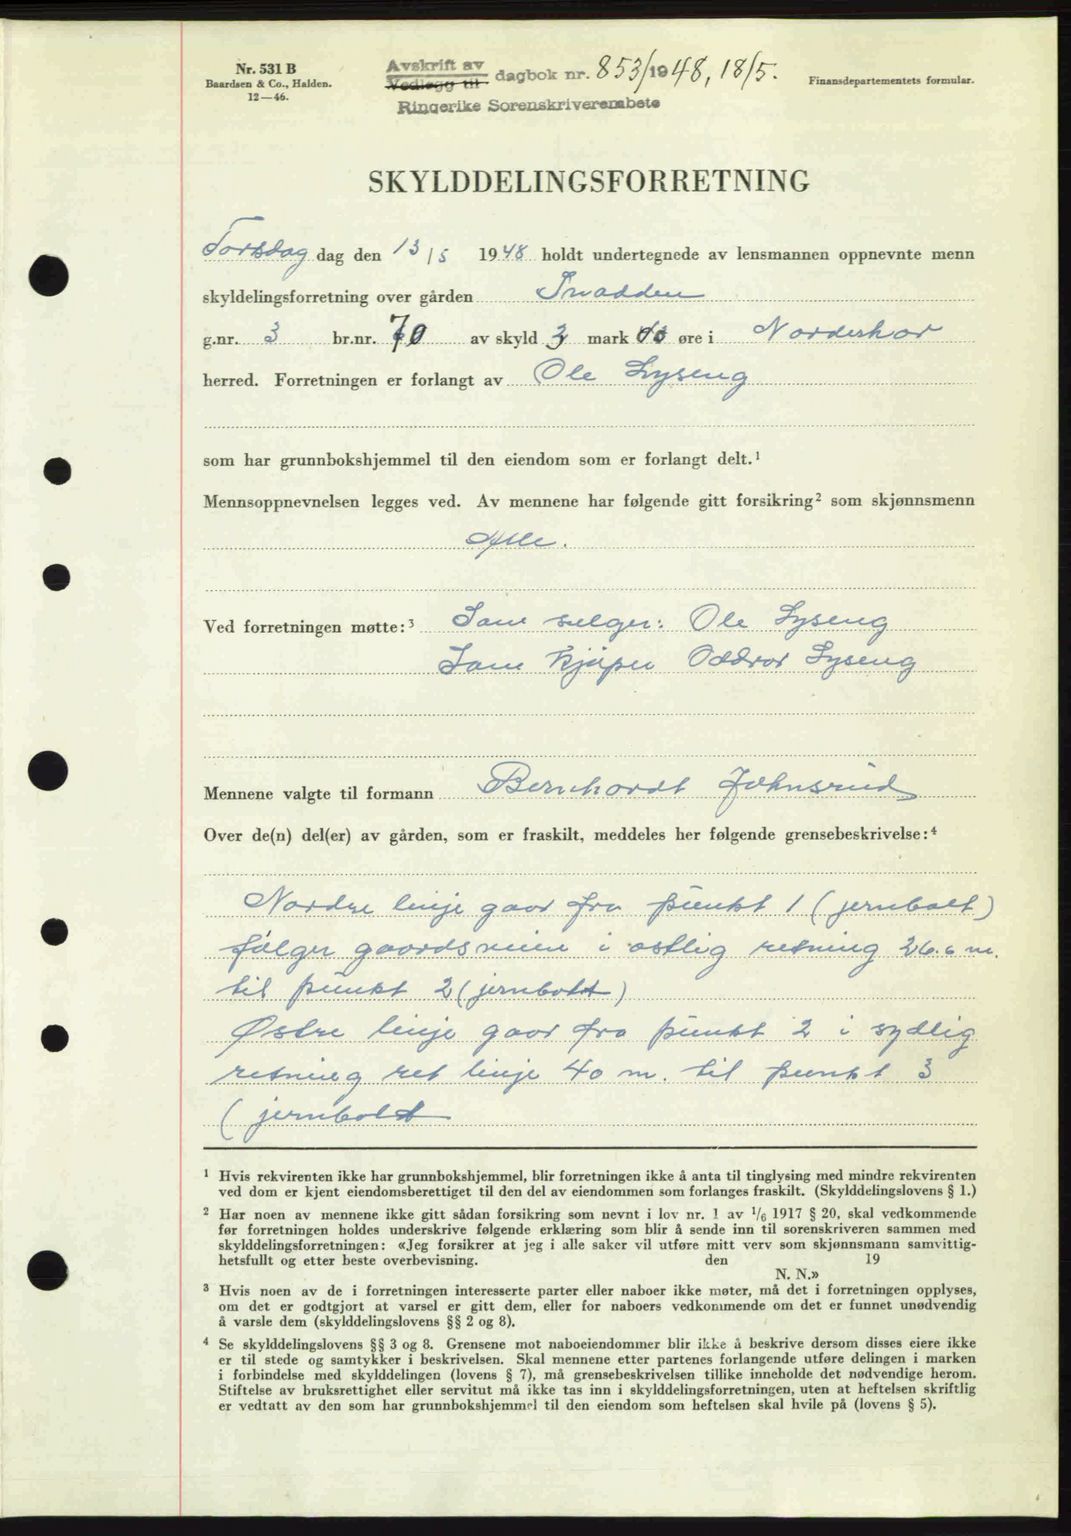 Nr. 531 B
Baardsen & Co., Halden.
12—46.
Avskrift av
Vedlegg til dagbok nr. 853/1948, 18/5.
Ringerike Sorenskriverembete
Finansdepartementets formular.
SKYLDDELINGSFORRETNING
Torsdag dag den 13/5 1948 holdt undertegnede av lensmannen oppnevnte menn
skyldelingsforretning over gården Svadden
g.nr. 3 br.nr. 70 av skyld 3 mark øre i Norderhov
herred. Forretningen er forlangt av Ole Lyseng
som har grunnbokshjemmel til den eiendom som er forlangt delt.¹
Mennsoppnevnelsen legges ved. Av mennene har følgende gitt forsikring² som skjønnsmenn
Alle.
Ved forretningen møtte:³ Som selger: Ole Lyseng
Som kjøper Oddvar Lyseng
Mennene valgte til formann Bernhardt Johnsrud
Over de(n) del(er) av gården, som er fraskilt, meddeles her følgende grensebeskrivelse:⁴
Nordre linje gaar fra punkt 1 (jernbolt)
følger gaardsveien i østlig retning 26.6 m.
til punkt 2 (jernbolt)
Østre linje gaar fra punkt 2 i sydlig
retning ret linje 40 m. til punkt 3
(jernbolt
¹ Hvis rekvirenten ikke har grunnbokshjemmel, blir forretningen ikke å anta til tinglysing med mindre rekvirenten
ved dom er kjent eiendomsberettiget til den del av eiendommen som forlanges fraskilt. (Skylddelingslovens § 1.)
² Har noen av mennene ikke gitt sådan forsikring som nevnt i lov nr. 1 av 1/6 1917 § 20, skal vedkommende
før forretningen holdes underskrive følgende erklæring som blir å sende inn til sorenskriveren sammen med
skylddelingsforretningen: «Jeg forsikrer at jeg i alle saker vil utføre mitt verv som skjønnsmann samvittig-
hetsfullt og etter beste overbevisning. den 19
N. N.»
³ Hvis noen av de i forretningen interesserte parter eller naboer ikke møter, må det i forretningen opplyses,
om det er godtgjort at varsel er gitt dem, eller for naboers vedkommende om det er funnet unødvendig
å varsle dem (skylddelingslovens §§ 2 og 8).
⁴ Se skylddelingslovens §§ 3 og 8. Grensene mot naboeiendommer blir ikke å beskrive dersom disses eiere ikke
er til stede og samtykker i beskrivelsen. Skal mennene etter partenes forlangende utføre delingen i marken
i forbindelse med skylddelingen (lovens § 7), må grensebeskrivelsen tillike inneholde det nødvendige herom.
Stiftelse av bruksrettighet eller servitut må ikke tas inn i skylddelingsforretningen, uten at heftelsen skriftlig
er vedtatt av den som har grunnbokshjemmel til den eiendom som heftelsen skal hvile på (lovens § 5).